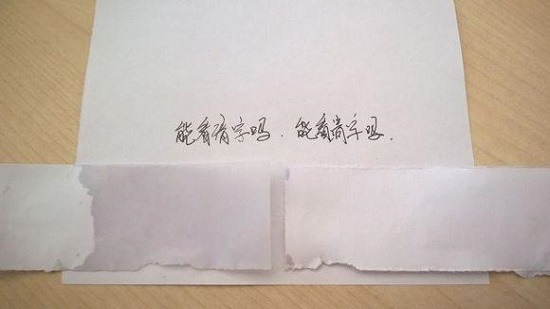 能看清字吗.能看清字吗.